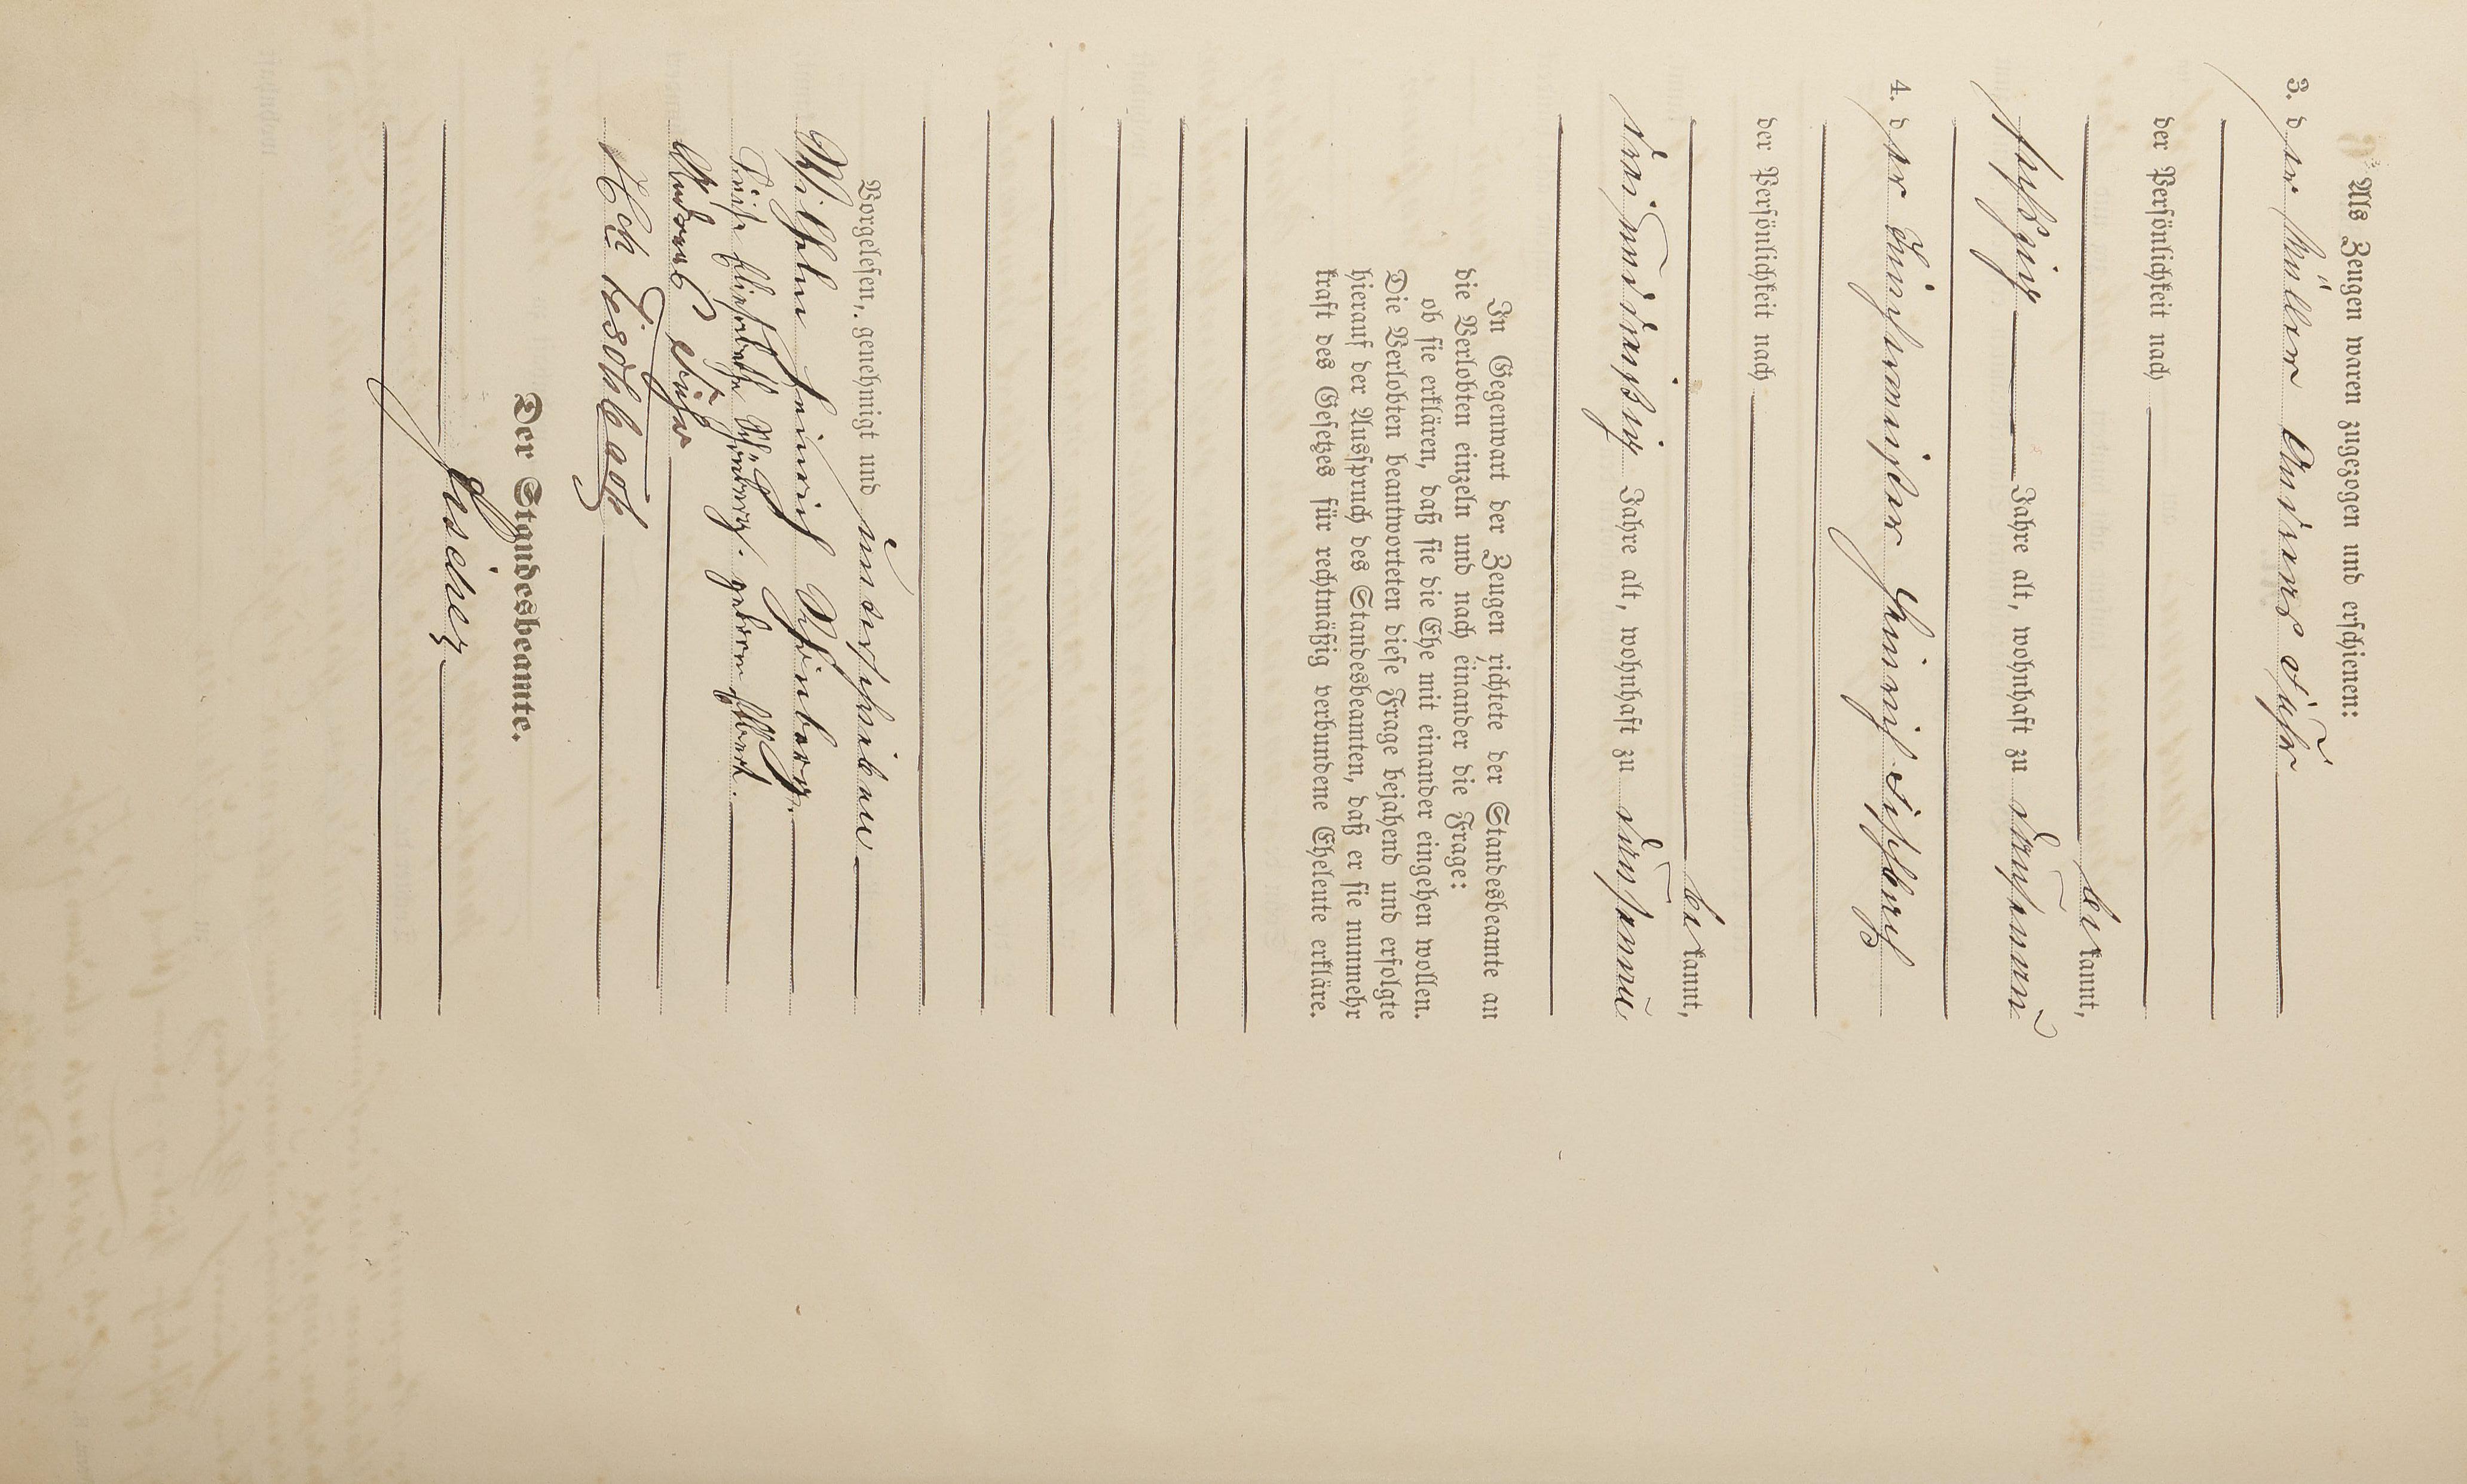 Als Zeugen waren zugezogen und erschienen:
3. der Müller Andreas Dühr
der Persönlichkeit nach
bekannt,
sechszig Jahre alt, wohnhaft zu
4. der Heinrich
der Persönlichkeit nach
bekannt,
dreiunddreißig Jahre alt, wohnhaft zu
In Gegenwart der Zeugen richtete der Standesbeamte an
die Verlobten einzeln und nach einander die Frage:
ob sie erklären, daß sie die Ehe mit einander eingehen wollen.
Die Verlobten beantworteten diese Frage bejahend und erfolgte
hierauf der Ausspruch des Standesbeamten, daß er sie nunmehr
kraft des Gesetzes für rechtmäßig verbundene Eheleute erkläre.
Vorgelesen, genehmigt und unterschrieben
Wilhelm Heinrich Schönberg.
Elisabethe Schönberg. geborne
Andreas Dühr
Hch
Der Standesbeamte.